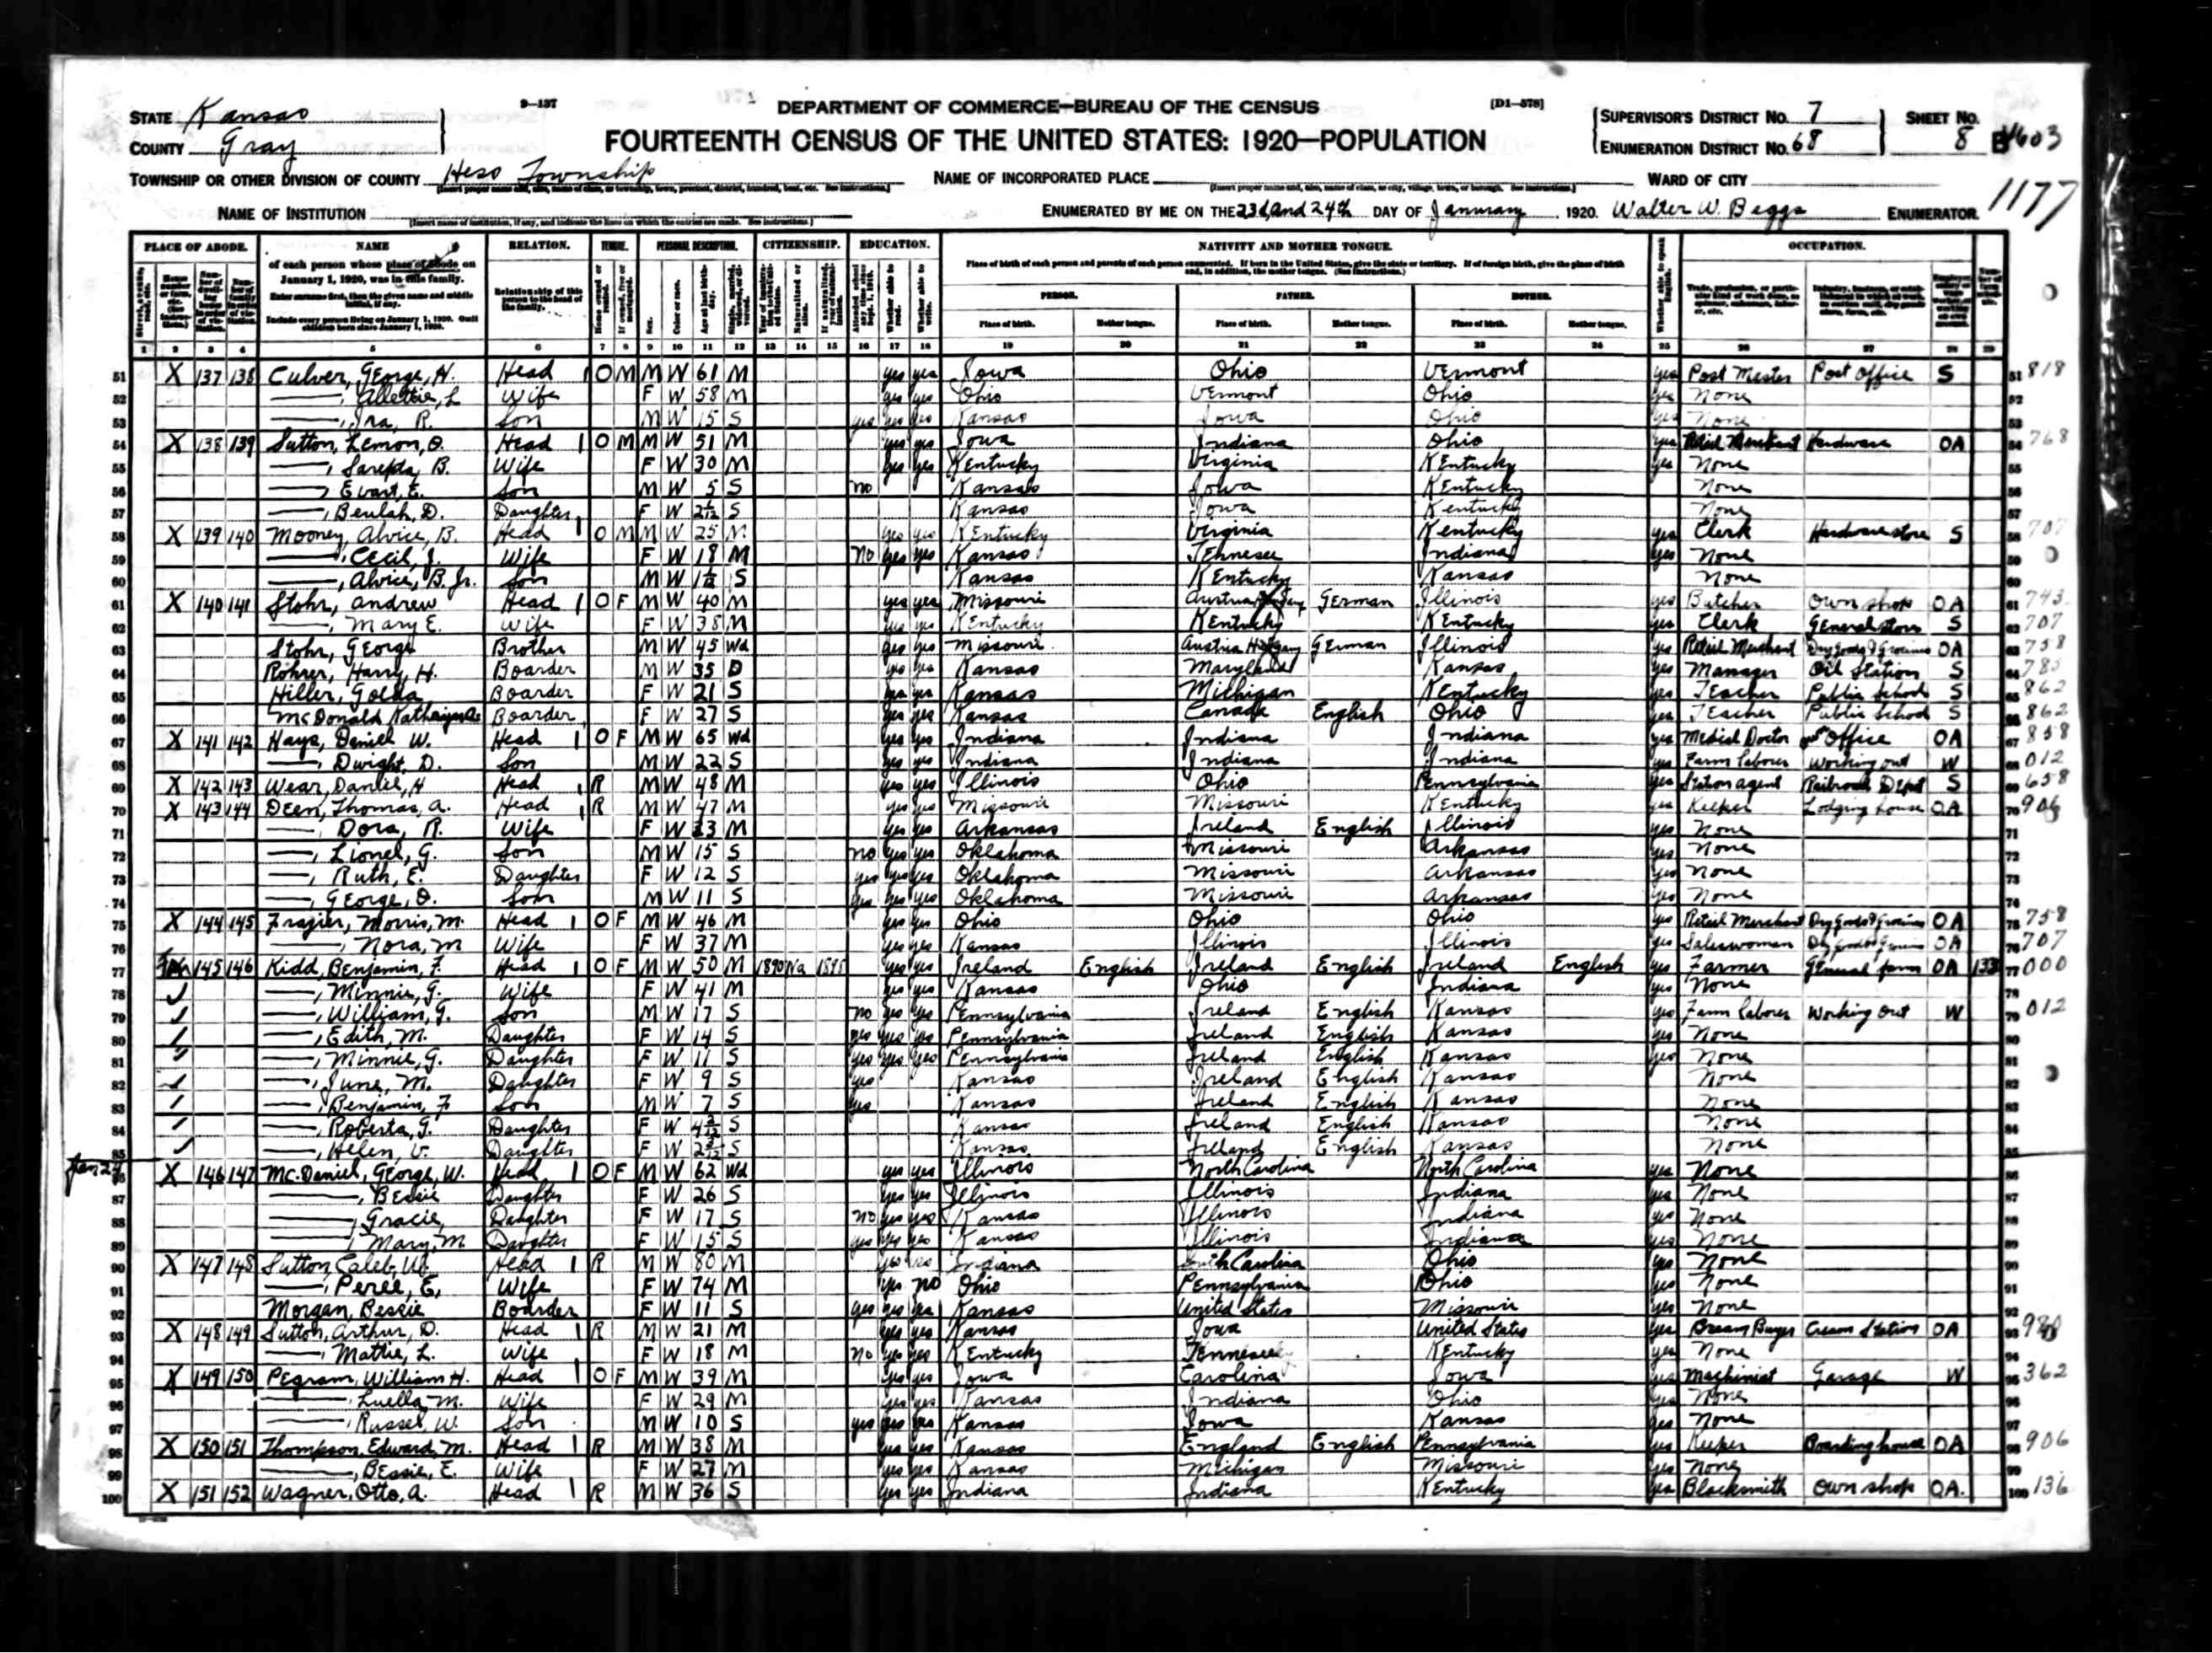 9-137
DEPARTMENT OF COMMERCE—BUREAU OF THE CENSUS
[D1-578]
STATE Kansas
COUNTY Gray
FOURTEENTH CENSUS OF THE UNITED STATES: 1920—POPULATION
SUPERVISOR'S DISTRICT No. 7
ENUMERATION DISTRICT No. 68
SHEET No. 8 B
4603
TOWNSHIP OR OTHER DIVISION OF COUNTY Hess Township
NAME OF INCORPORATED PLACE
WARD OF CITY
1177
NAME OF INSTITUTION
ENUMERATED BY ME ON THE 23d and 24th DAY OF January, 1920. Walter W. Beggs ENUMERATOR.
PLACE OF ABODE. NAME RELATION. TENURE. PERSONAL DESCRIPTION. CITIZENSHIP. EDUCATION. NATIVITY AND MOTHER TONGUE. OCCUPATION.
of each person whose place of abode on January 1, 1920, was in this family.
Enter surname first, then the given name and middle initial, if any.
Include every person living on January 1, 1920. Omit children born since January 1, 1920.
Relationship of this person to the head of the family.
Place of birth of each person and parents of each person enumerated. If born in the United States, give the state or territory. If of foreign birth, give the place of birth and, in addition, the mother tongue. (See Instructions.)
PERSON. FATHER. MOTHER.
Place of birth. Mother tongue. Place of birth. Mother tongue. Place of birth. Mother tongue.
1 2 3 4 5 6 7 8 9 10 11 12 13 14 15 16 17 18 19 20 21 22 23 24 25 26 27 28 29
51 X 137 138 Culver, George, H. Head 1 O M M W 61 M yes yes Iowa Ohio Vermont yes Post Master Post Office S 51 818
52 —, Allettie, L Wife F W 58 M yes yes Ohio Vermont Ohio yes None 52
53 —, Ira, R. Son M W 15 S yes yes yes Kansas Iowa Ohio yes None 53
54 X 138 139 Sutton, Lemon, O. Head 1 O M M W 51 M yes yes Iowa Indiana Ohio yes Retail Merchant Hardware OA 54 768
55 —, Sarepta, B. Wife F W 30 M yes yes Kentucky Virginia Kentucky yes None 55
56 —, Evart, E. Son M W 5 S no Kansas Iowa Kentucky None 56
57 —, Beulah, D. Daughter F W 2 1/12 S Kansas Iowa Kentucky None 57
58 X 139 140 Mooney, Alvice, B. Head 1 O M M W 25 M yes yes Kentucky Virginia Kentucky yes Clerk Hardware store S 58 707
59 —, Cecil, J. Wife F W 18 M no yes yes Kansas Tennesee Indiana yes None 59
60 —, Alvice, B. Jr. Son M W S Kansas Kentucky Kansas None 60
61 X 140 141 Stohr, Andrew Head 1 O F M W 40 M yes yes Missouri Austria German Illinois yes Butcher Own shop OA 61 743
62 —, Mary E. Wife F W 38 M yes yes Kentucky Kentucky Kentucky yes Clerk General store S 62 707
63 Stohr, George Brother M W 45 Wd yes yes Missouri Austria German Illinois yes Retail Merchant Dry Goods & Groceries OA 63 758
64 Rohrer, Harry, H. Boarder M W 35 D yes yes Kansas Maryland Kansas yes Manager Oil Station S 64 785
65 Hiller, Golda Boarder F W 21 S yes yes Kansas Michigan Kentucky yes Teacher Public School S 65 862
66 McDonald Boarder F W 27 S yes yes Kansas Canada English Ohio yes Teacher Public School S 66 862
67 X 141 142 Hays, Daniel W. Head 1 O F M W 65 Wd yes yes Indiana Indiana Indiana yes Medical Doctor Office OA 67 858
68 —, Dwight, D. Son M W 22 S yes yes Indiana Indiana Indiana yes Farm Laborer Working out W 68 012
69 X 142 143 Wear, Daniel, H Head 1 R M W 48 M yes yes Illinois Ohio Pennsylvania yes Station agent Railroad Depot S 69 658
70 X 143 144 Deen, Thomas, A. Head 1 R M W 47 M yes yes Missouri Missouri Kentucky yes Keeper Lodging house OA 70 906
71 —, Dora, R. Wife F W 33 M yes yes Arkansas Ireland English Illinois yes None 71
72 —, Lionel, G. Son M W 15 S no yes yes Oklahoma Missouri Arkansas yes None 72
73 —, Ruth, E. Daughter F W 12 S yes yes yes Oklahoma Missouri Arkansas yes None 73
74 —, George, O. Son M W 11 S yes yes yes Oklahoma Missouri Arkansas yes None 74
75 X 144 145 Frazier, Morris, M. Head 1 O F M W 46 M yes yes Ohio Ohio Ohio yes Retail Merchant Dry Goods & Groceries OA 75 758
76 —, Nora, M Wife F W 37 M yes yes Kansas Illinois Illinois yes Saleswoman Dry Goods Groceries OA 76 707
77 Fm 145 146 Kidd, Benjamin, F. Head 1 O F M W 50 M 1890 Na 1895 yes yes Ireland English Ireland English Ireland English yes Farmer General farm OA 133 77 000
78 —, Minnie, G. Wife F W 41 M yes yes Kansas Ohio Indiana yes None 78
79 —, William, G. Son M W 17 S no yes yes Pennsylvania Ireland English Kansas yes Farm Laborer Working out W 79 012
80 —, Edith, M. Daughter F W 14 S yes yes yes Pennsylvania Ireland English Kansas yes None 80
81 —, Minnie, G. Daughter F W 11 S yes yes yes Pennsylvania Ireland English Kansas yes None 81
82 —, June, M. Daughter F W 9 S yes Kansas Ireland English Kansas None 82
83 —, Benjamin, F Son M W 7 S yes Kansas Ireland English Kansas None 83
84 —, Roberta, G. Daughter F W S Kansas Ireland English Kansas None 84
85 —, Helen, V. Daughter F W S Kansas Ireland English Kansas None 85
Jan 24
86 X 146 147 McDaniel, George, W. Head 1 O F M W 62 Wd yes yes Illinois North Carolina North Carolina yes None 86
87 —, Bessie Daughter F W 26 S yes yes Illinois Illinois Indiana yes None 87
88 —, Gracie, Daughter F W 17 S no yes yes Kansas Illinois Indiana yes None 88
89 —, Mary, M Daughter F W 15 S yes yes yes Kansas Illinois Indiana yes None 89
90 X 147 148 Sutton, Caleb, W. Head 1 R M W 80 M yes yes Indiana South Carolina Ohio yes None 90
91 —, Peree, E, Wife F W 74 M yes no Ohio Pennsylvania Ohio yes None 91
92 Morgan, Bessie Boarder F W 11 S yes yes yes Kansas United States Missouri yes None 92
93 X 148 149 Sutton, Arthur, D. Head 1 R M W 21 M yes yes Kansas Iowa United States yes Cream Buyer Cream Station OA 93
94 —, Mattie, L. Wife F W 18 M no yes yes Kentucky Tennessee Kentucky yes None 94
95 X 149 150 Pegram, William H. Head 1 O F M W 39 M yes yes Iowa Carolina Iowa yes Machinist Garage W 95 362
96 —, Luella, M. Wife F W 29 M yes yes Kansas Indiana Ohio yes None 96
97 —, Russel, W. Son M W 10 S yes yes yes Kansas Iowa Kansas yes None 97
98 X 150 151 Thompson, Edward, M. Head 1 R M W 38 M yes yes Kansas England English Pennsylvania yes Keeper Boarding house OA 98 906
99 —, Bessie, E. Wife F W 27 M yes yes Kansas Michigan Missouri yes None 99
100 X 151 152 Wagner, Otto, A. Head 1 R M W 36 S yes yes Indiana Indiana Kentucky yes Blacksmith Own shop OA. 100 136